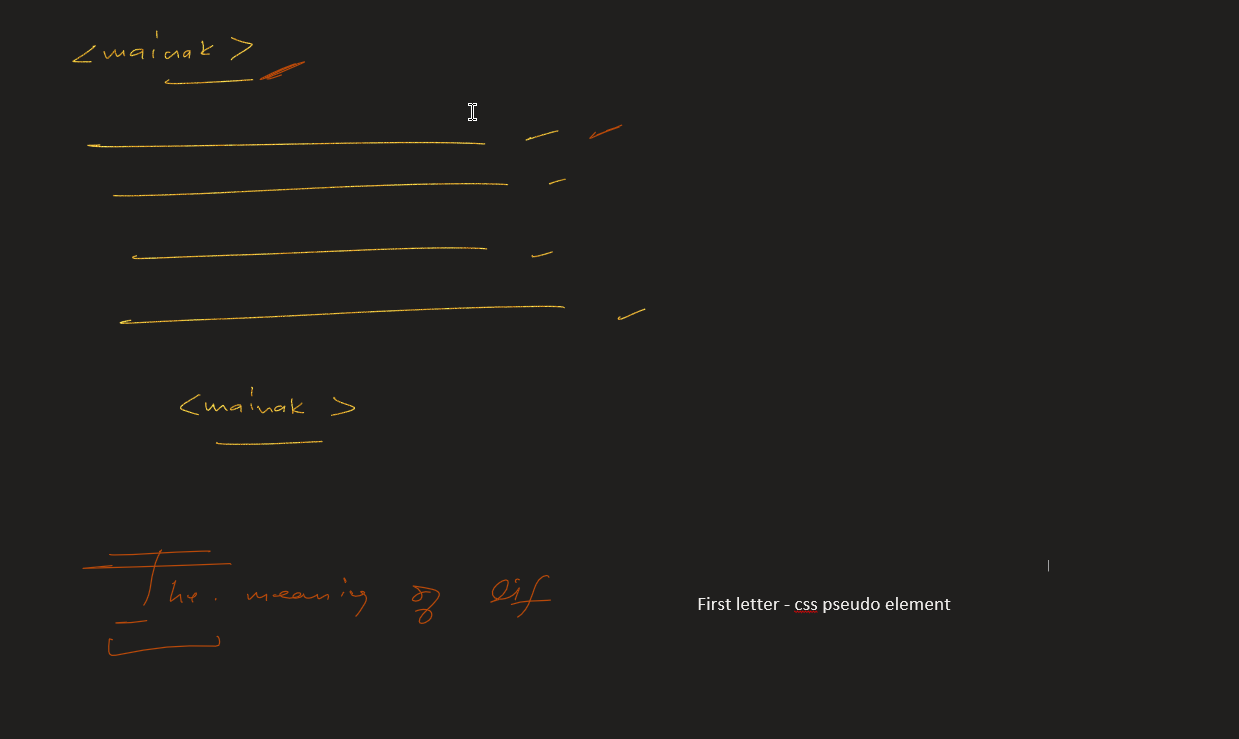 <mainak>
<mainak >
The. meaning of lif
First letter - css pseudo element